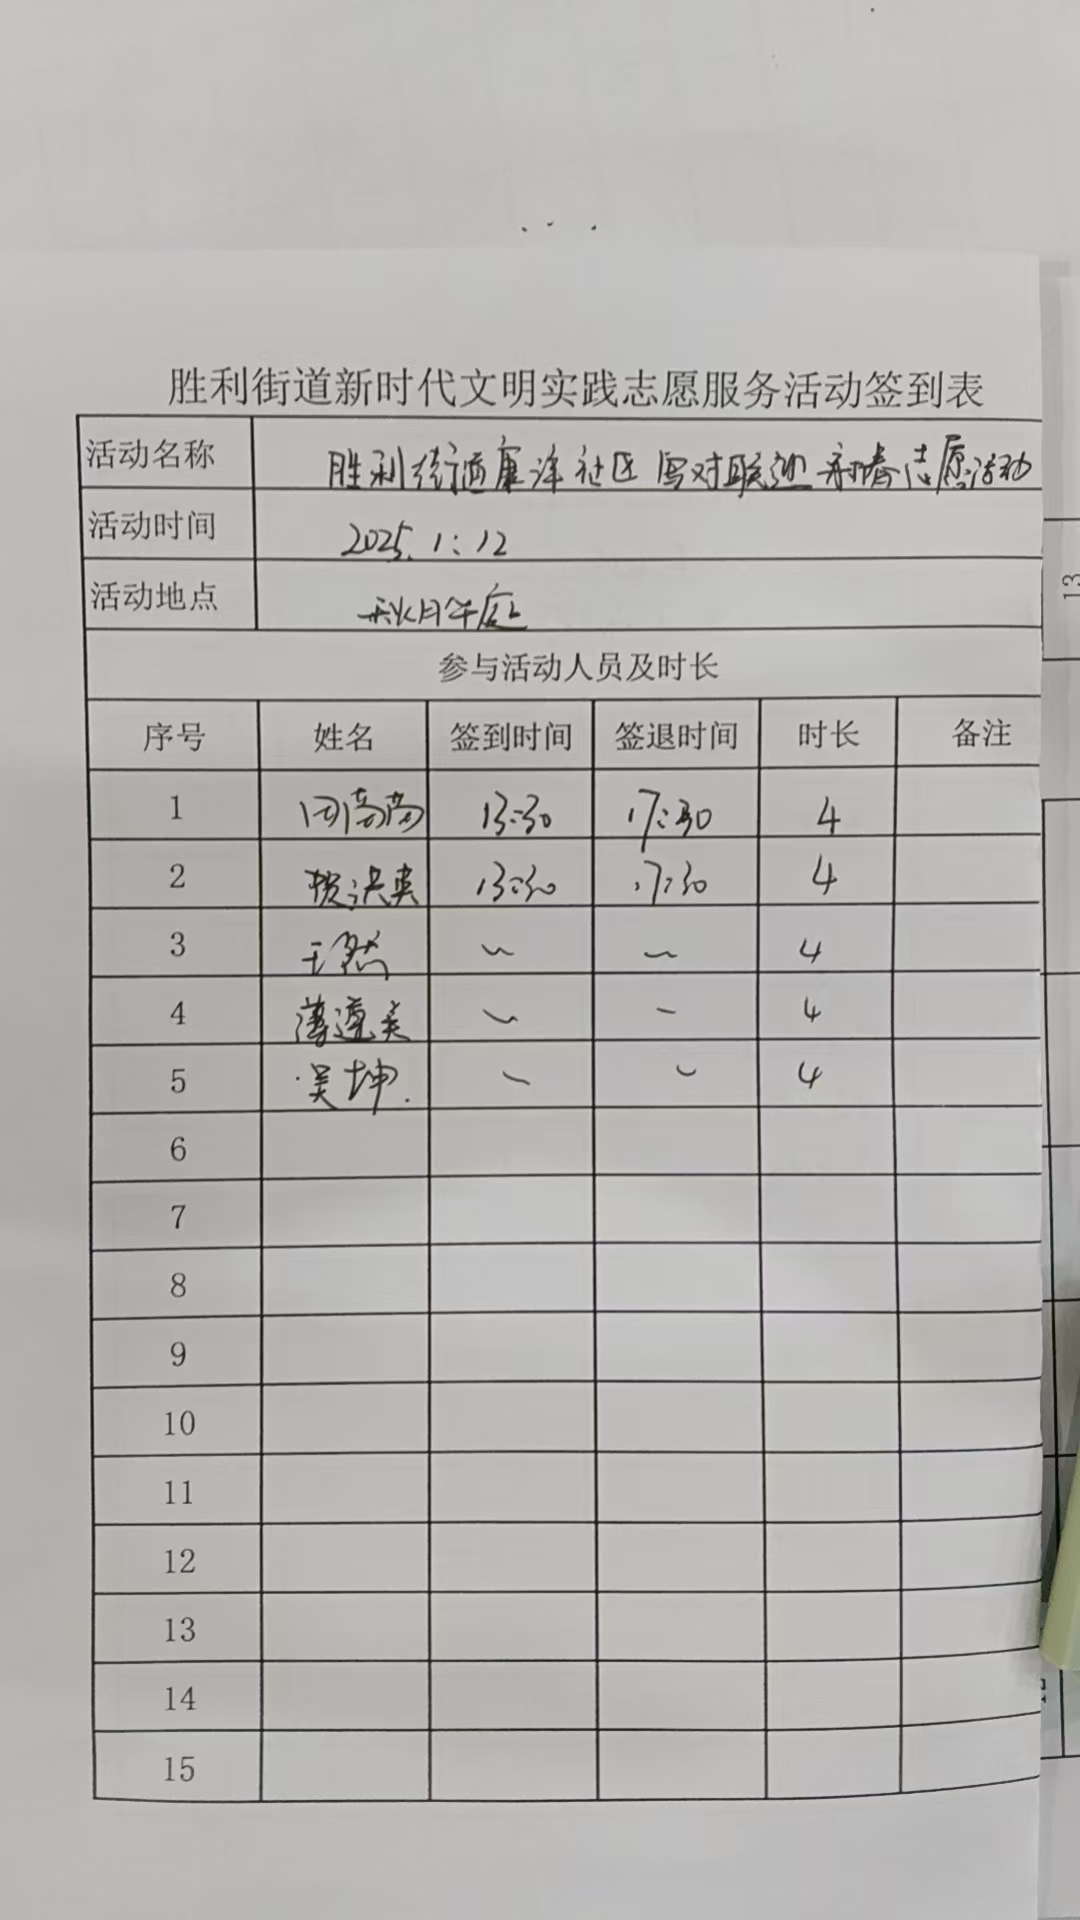 胜利街道新时代文明实践志愿服务活动签到表
活动名称 胜利街道康洋社区写对联迎新春志愿活动
活动时间 2025.1:12
活动地点
参与活动人员及时长
序号 姓名 签到时间 签退时间 时长 备注
1 13:30 17:30 4
2 13:30 17:30 4
3 王然 〜 〜 4
4 薄遵美 〜 - 4
5 吴坤. 〜 〜 4
6
7
8
9
10
11
12
13
14
15
13